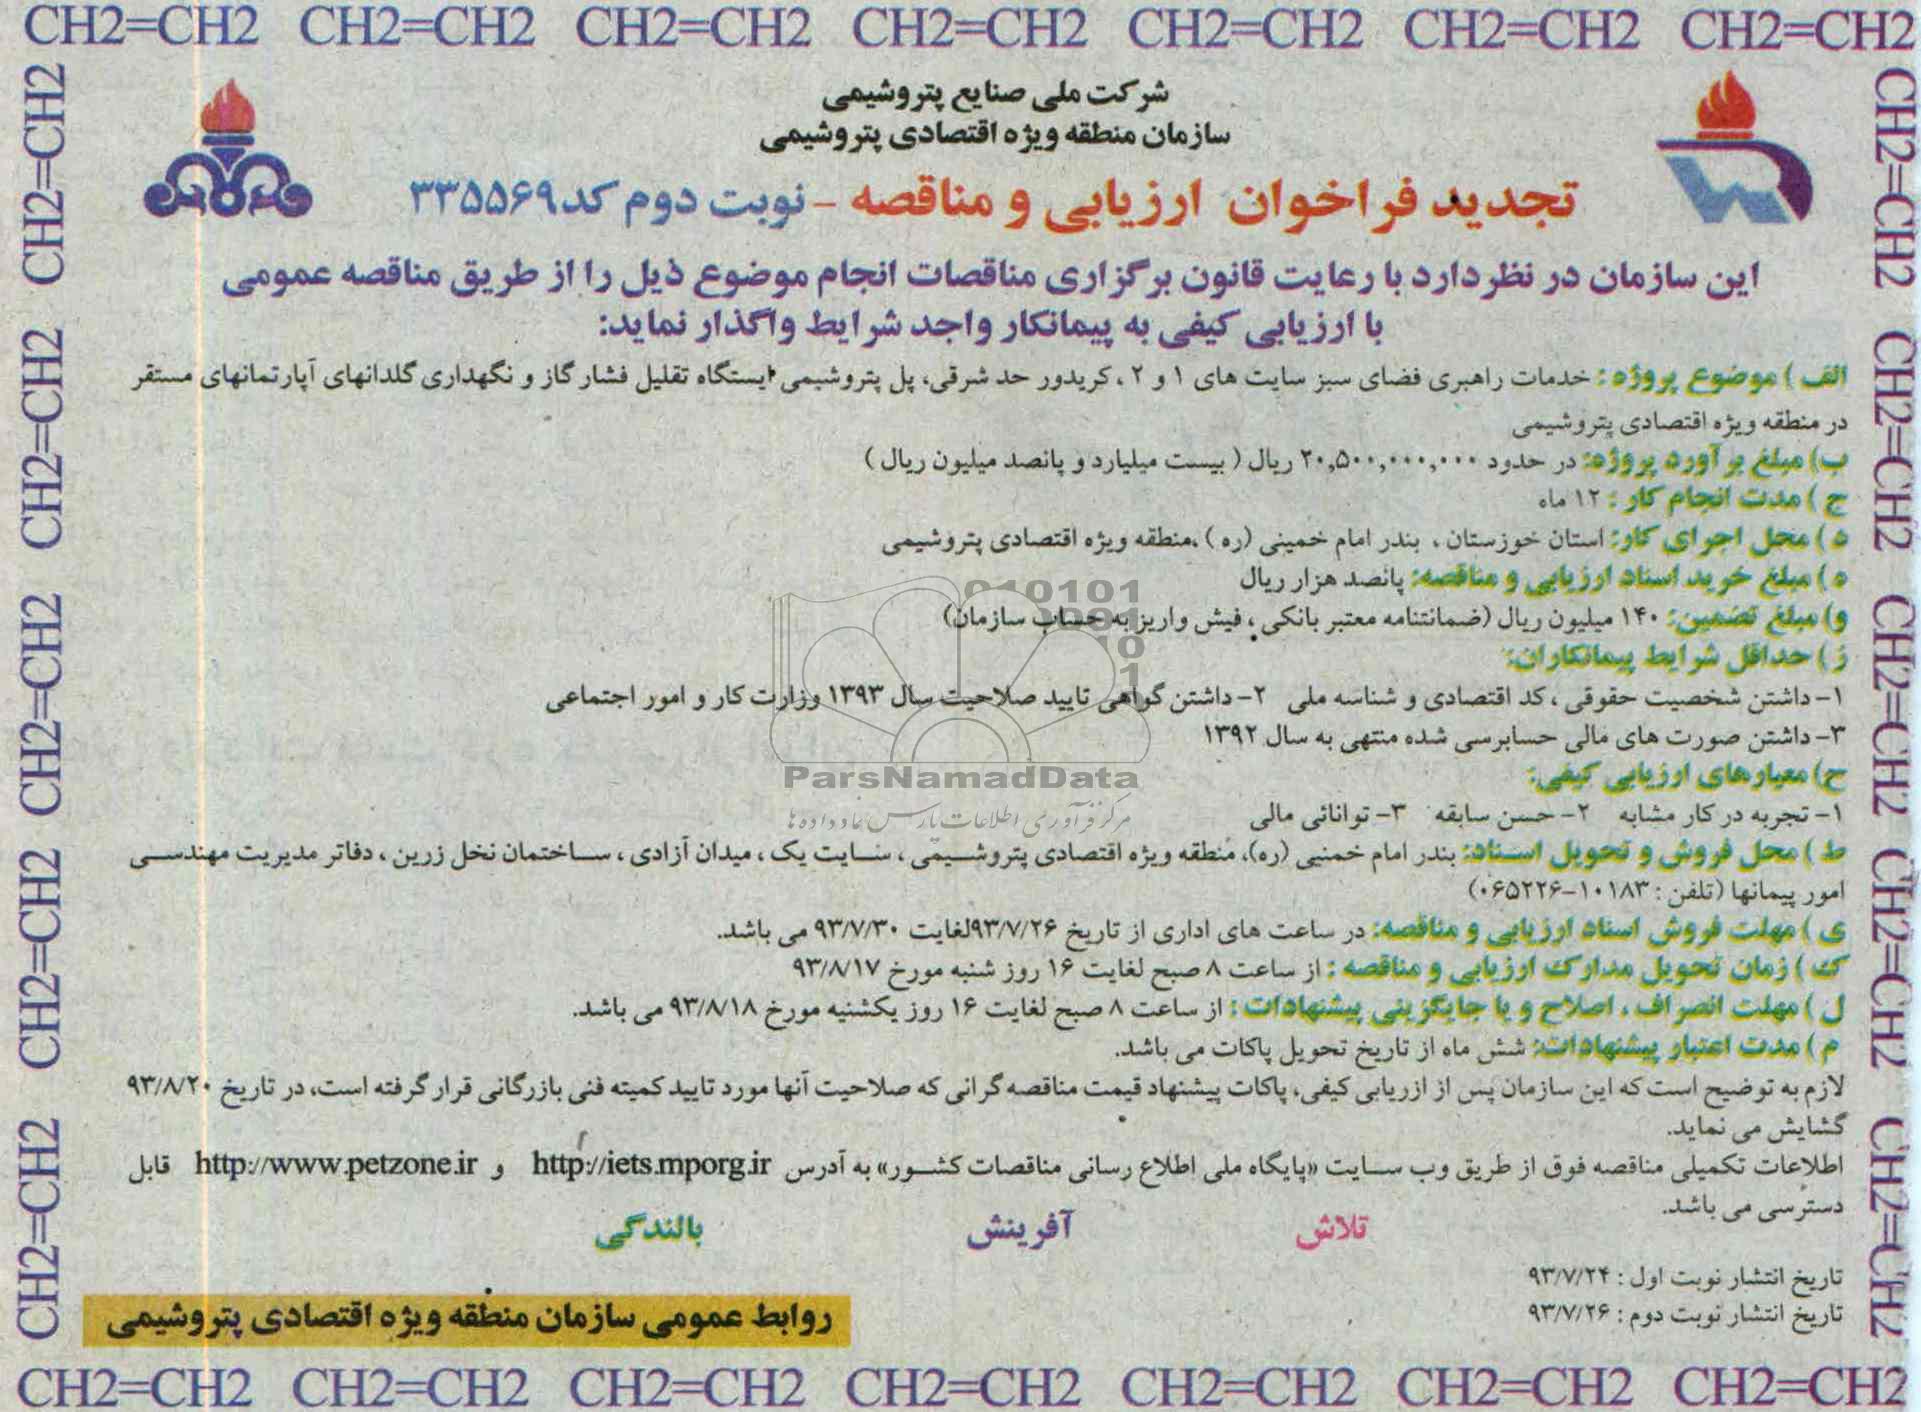 CH2=CH2 CH2=CH2 CH2=CH2 CH2=CH2 CH2=CH2 CH2=CH2 CH2=CH2
شرکت ملی صنایع پتروشیمی
سازمان منطقه ویژه اقتصادی پتروشیمی
تجدید فراخوان ارزیابی و مناقصه - نوبت دوم کد ۳۳۵۵۶۹
این سازمان در نظر دارد با رعایت قانون برگزاری مناقصات انجام موضوع ذیل را از طریق مناقصه عمومی
با ارزیابی کیفی به پیمانکار واجد شرایط واگذار نماید:
الف ) موضوع پروژه : خدمات راهبری فضای سبز سایت های ۱ و ۲ ، کریدور حد شرقی، پل پتروشیمی ایستگاه تقلیل فشار گاز و نگهداری گلدانهای آپارتمانهای مستقر
در منطقه ویژه اقتصادی پتروشیمی
ب) مبلغ برآورد پروژه: در حدود ۲۰,۵۰۰,۰۰۰,۰۰۰ ریال ( بیست میلیارد و پانصد میلیون ریال )
ج ) مدت انجام کار : ۱۲ ماه
د ) محل اجرای کار: استان خوزستان ، بندر امام خمینی (ره ) ،منطقه ویژه اقتصادی پتروشیمی
ه ) مبلغ خرید اسناد ارزیابی و مناقصه: پانصد هزار ریال
و) مبلغ تضمین: ۱۴۰ میلیون ریال (ضمانتنامه معتبر بانکی ، فیش واریز به حساب سازمان)
ز ) حداقل شرایط پیمانکاران:
۱- داشتن شخصیت حقوقی ، کد اقتصادی و شناسه ملی ۲- داشتن گواهی تایید صلاحیت سال ۱۳۹۳ وزارت کار و امور اجتماعی
۳- داشتن صورت های مالی حسابرسی شده منتهی به سال ۱۳۹۲
ح) معیارهای ارزیابی کیفی:
۱- تجربه در کار مشابه ۲- حسن سابقه ۳- توانائی مالی
ط ) محل فروش و تحویل اسناد: بندر امام خمنیی (ره)، منطقه ویژه اقتصادی پتروشیمی ، سایت یک ، میدان آزادی ، ساختمان نخل زرین ، دفاتر مدیریت مهندسی
امور پیمانها (تلفن : ۱۰۱۸۳-۰۶۵۲۲۶)
ی ) مهلت فروش اسناد ارزیابی و مناقصه: در ساعت های اداری از تاریخ ۹۳/۷/۲۶لغایت ۹۳/۷/۳۰ می باشد.
ک ) زمان تحویل مدارک ارزیابی و مناقصه : از ساعت ۸ صبح لغایت ۱۶ روز شنبه مورخ ۹۳/۸/۱۷
ل ) مهلت انصراف ، اصلاح و یا جایگزینی پیشنهادات : از ساعت ۸ صبح لغایت ۱۶ روز یکشنبه مورخ ۹۳/۸/۱۸ می باشد.
م ) مدت اعتبار پیشنهادات: شش ماه از تاریخ تحویل پاکات می باشد.
لازم به توضیح است که این سازمان پس از ازریابی کیفی، پاکات پیشنهاد قیمت مناقصه گرانی که صلاحیت آنها مورد تایید کمیته فنی بازرگانی قرار گرفته است، در تاریخ ۹۳/۸/۲۰
گشایش می نماید.
اطلاعات تکمیلی مناقصه فوق از طریق وب سایت «پایگاه ملی اطلاع رسانی مناقصات کشور» به آدرس http://iets.mporg.ir و http://www.petzone.ir قابل
دسترسی می باشد.
تلاش آفرینش بالندگی
تاریخ انتشار نوبت اول : ۹۳/۷/۲۴
تاریخ انتشار نوبت دوم : ۹۳/۷/۲۶
روابط عمومی سازمان منطقه ویژه اقتصادی پتروشیمی
CH2=CH2 CH2=CH2 CH2=CH2 CH2=CH2 CH2=CH2 CH2=CH2 CH2=CH2
CH2=CH2 CH2=CH2 CH2=CH2 CH2=CH2 CH2=CH2
CH2=CH2 CH2=CH2 CH2=CH2 CH2=CH2 CH2=CH2
ParsNamadData
مرکز فرآوری اطلاعات پارس نماد داده ها